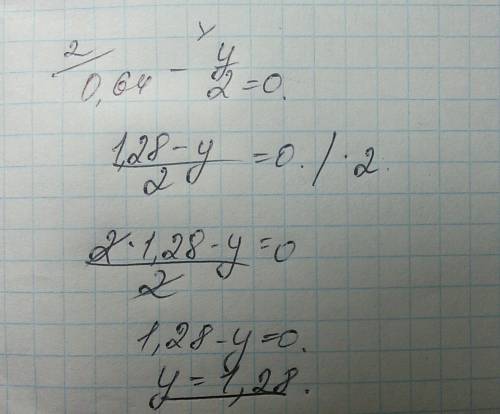 2/ 0,64 - y/2 = 0.
(1,28 - y)/2 = 0. / · 2.
(2 · 1,28 - y)/2 = 0
1,28 - y = 0.
y = 1,28.